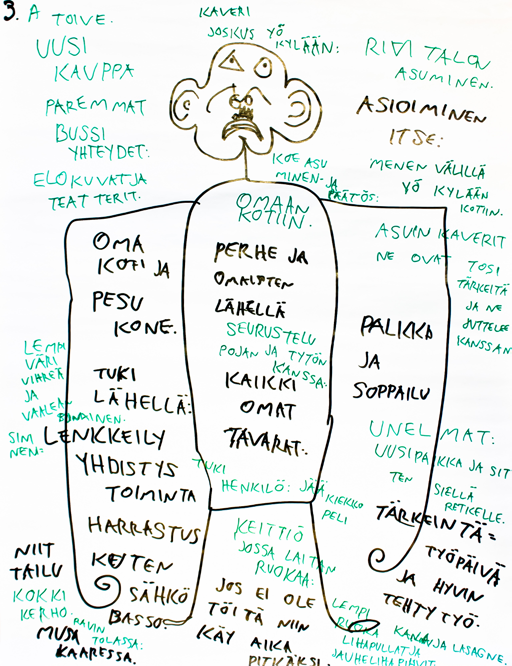 3. A TOIVE.
UUSI
KAUPPA
PAREMMAT
BUSSI
YHTEYDET:
ELOKUVAT JA
TEATTERIT.
KAVERI
JOSKUS YÖ
KYLÄÄN:
RIVI TALON
ASUMINEN.
ASIOIMINEN
ITSE:
MENEN VÄLILLÄ
YÖ KYLÄÄN
KOTIIN.
KOE ASU
MINEN- JA
PÄÄTÖS:
OMAAN
KOTIIN.
OMA
KOTI JA
PESU
KONE.
TUKI
LÄHELLÄ:
LENKKEILY
YHDISTYS
TOIMINTA
HARRASTUS
SÄHKÖ
BASSO.
PERHE JA
OMAISTEN
LÄHELLÄ
SEURUSTELU
POJAN JA TYTÖN
KANSSA.
KAIKKI
OMAT
TAVARAT.
TUKI
HENKILÖ: JÄÄ
KIEKKO
PELI
KEITTIÖ
JOSSA LAITAN
RUOKAA:
JOS EI OLE
TÖITÄ NIIN
KÄY AIKA
PITKÄKSI.
ASUIN KAVERIT
NE OVAT TOSI
TÄRKEITÄ
JA NE
JUTTELEE
KANSSAN
PALKKA
JA
SOPPAILU
UNELMAT:
UUSI PAIKKA JA SIT
TEN SIELLÄ
RETKELLE.
TÄRKEINTÄ=
TYÖPÄIVÄ
JA HYVIN
TEHTY TYÖ.
LEMPI
RUOKA KANA JA LASAGNE.
LIHAPULLAT JA
JAUHELIHAPIHVIT.
LEMPI
VÄRI
VIHREÄ
JA
VAALEAN
PUNAINEN.
SIM
NEN:
NIIT
TAILU
KOKKI
KERHO:
RAVIN
TOLASSA:
MUSA
KAARESSA.